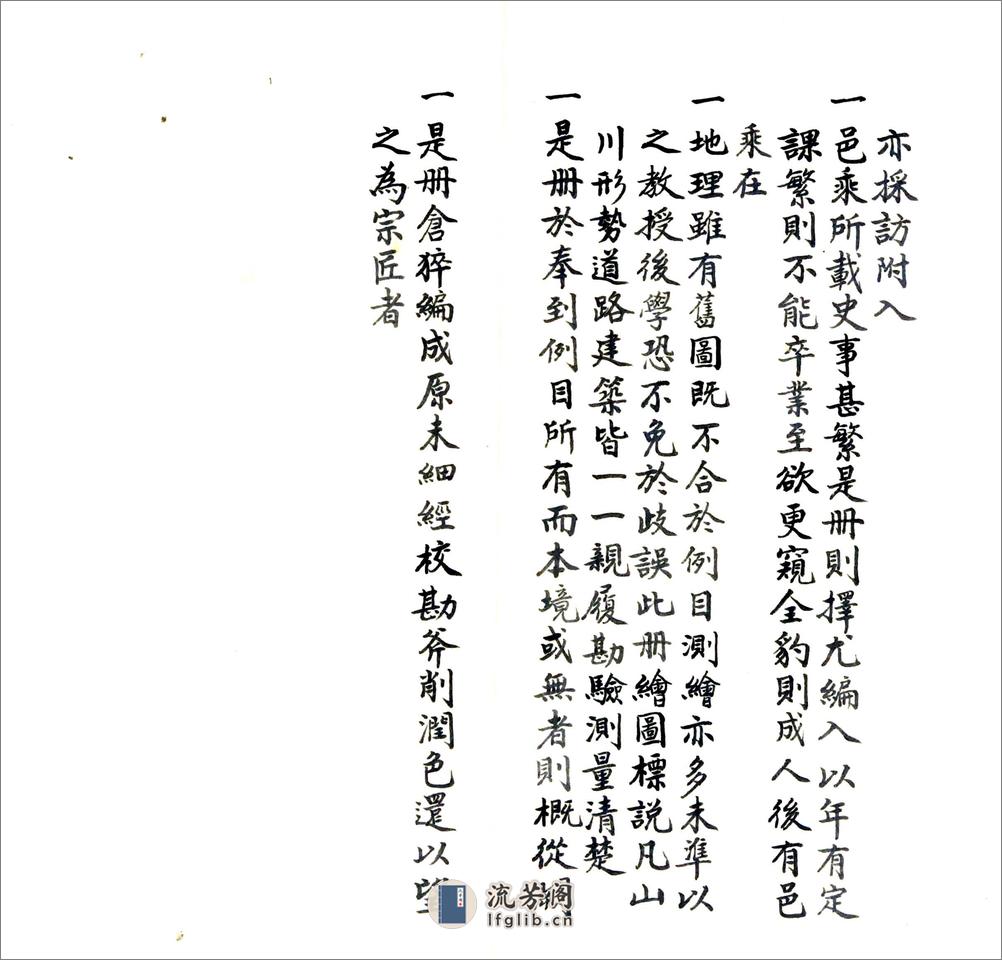 亦採訪附入
一邑乘所載史事甚繁是册則擇尤編入以年有定
課繁則不能卒業至欲更窺全豹則成人後有邑
乘在
一地理雖有舊圖既不合於例目測繪亦多未準以
之教授後學恐不免於歧誤此册繪圖標説凡山
川形勢道路建築皆一一親履勘驗測量清楚
一是册於奉到例目所有而本境或無者則概從
一是册倉猝編成原未細經校勘斧削潤色還以望
之為宗匠者
流芳阁
lfglib.cn